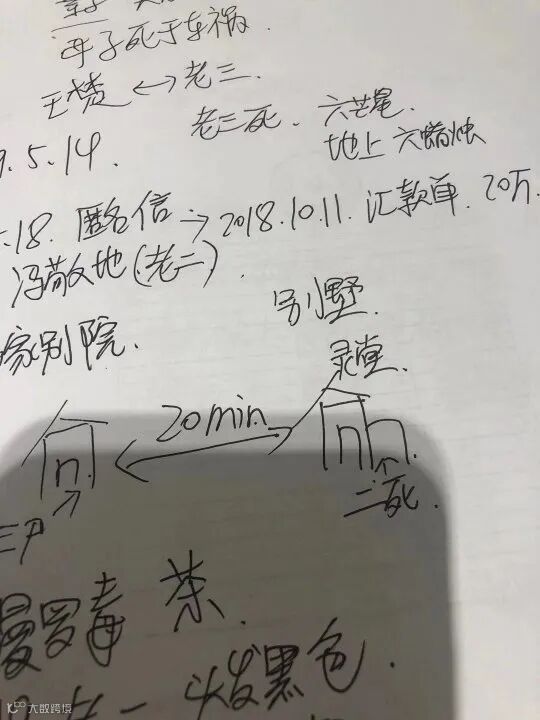 母子死于车祸.
王楚 ↔ 老三.
老三死. 六芒星.
地上六蜡烛
9.5.14.
.18. 匿名信 → 2018.10.11. 汇款单. 20万.
冯敬地(老二).
家别院.
别墅.
灵堂.
20min.
三尸
二死.
曼罗毒 茶.
一 发黑色.
大数跨境